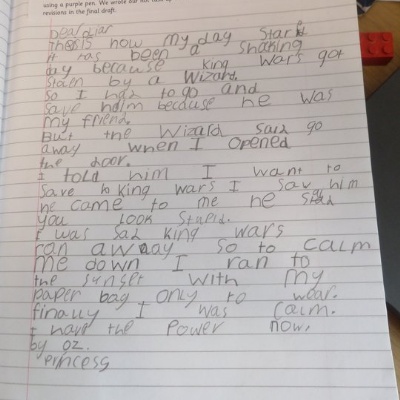 using a purple pen. We wrote our
revisions in the final draft.
Dear diar
This is how my day Start
it has been a shaking
day because king wars got
Stolen by a Wizard.
So I had to go and
save him because he was
my friend.
But the Wizard said go
away when I opened
the door.
I told him I want to
save king wars I Sav him
he came to me he said
you look Stupid.
I was Sad king wars
ran away so to calm
me down I ran to
the sunset with my
paper bag only to wear.
finally I was calm.
I have the Power now.
by oz.
Princess